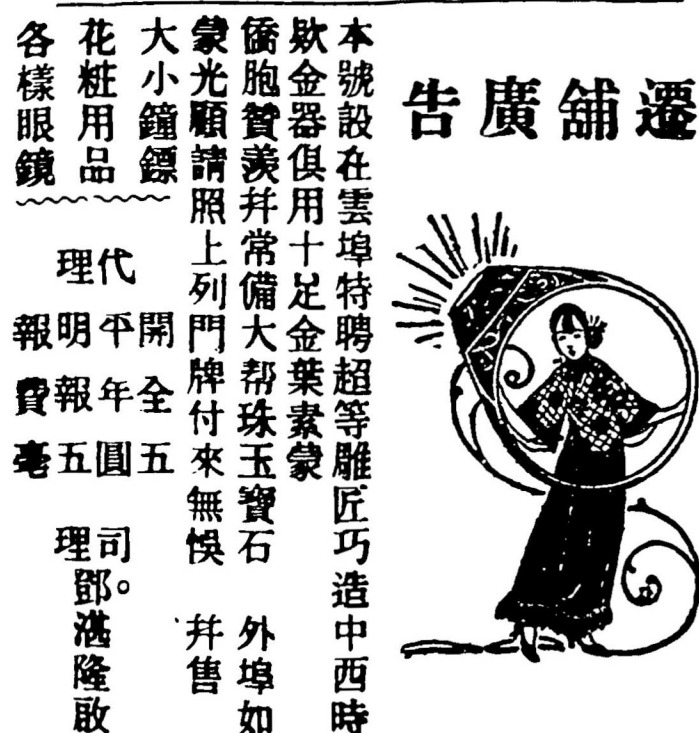 遷舖廣告
本號設在雲埠特聘超等雕匠巧造中西時
欵金器俱用十足金葉素蒙
僑胞贊羡幷常備大帮珠玉寶石 外埠如
蒙光顧請照上列門牌付來無悞 幷售
大小鐘鏢
花粧用品
各樣眼鏡
代理
開平明報
全年報費
五圓五毫
司理。
鄧湛隆啟